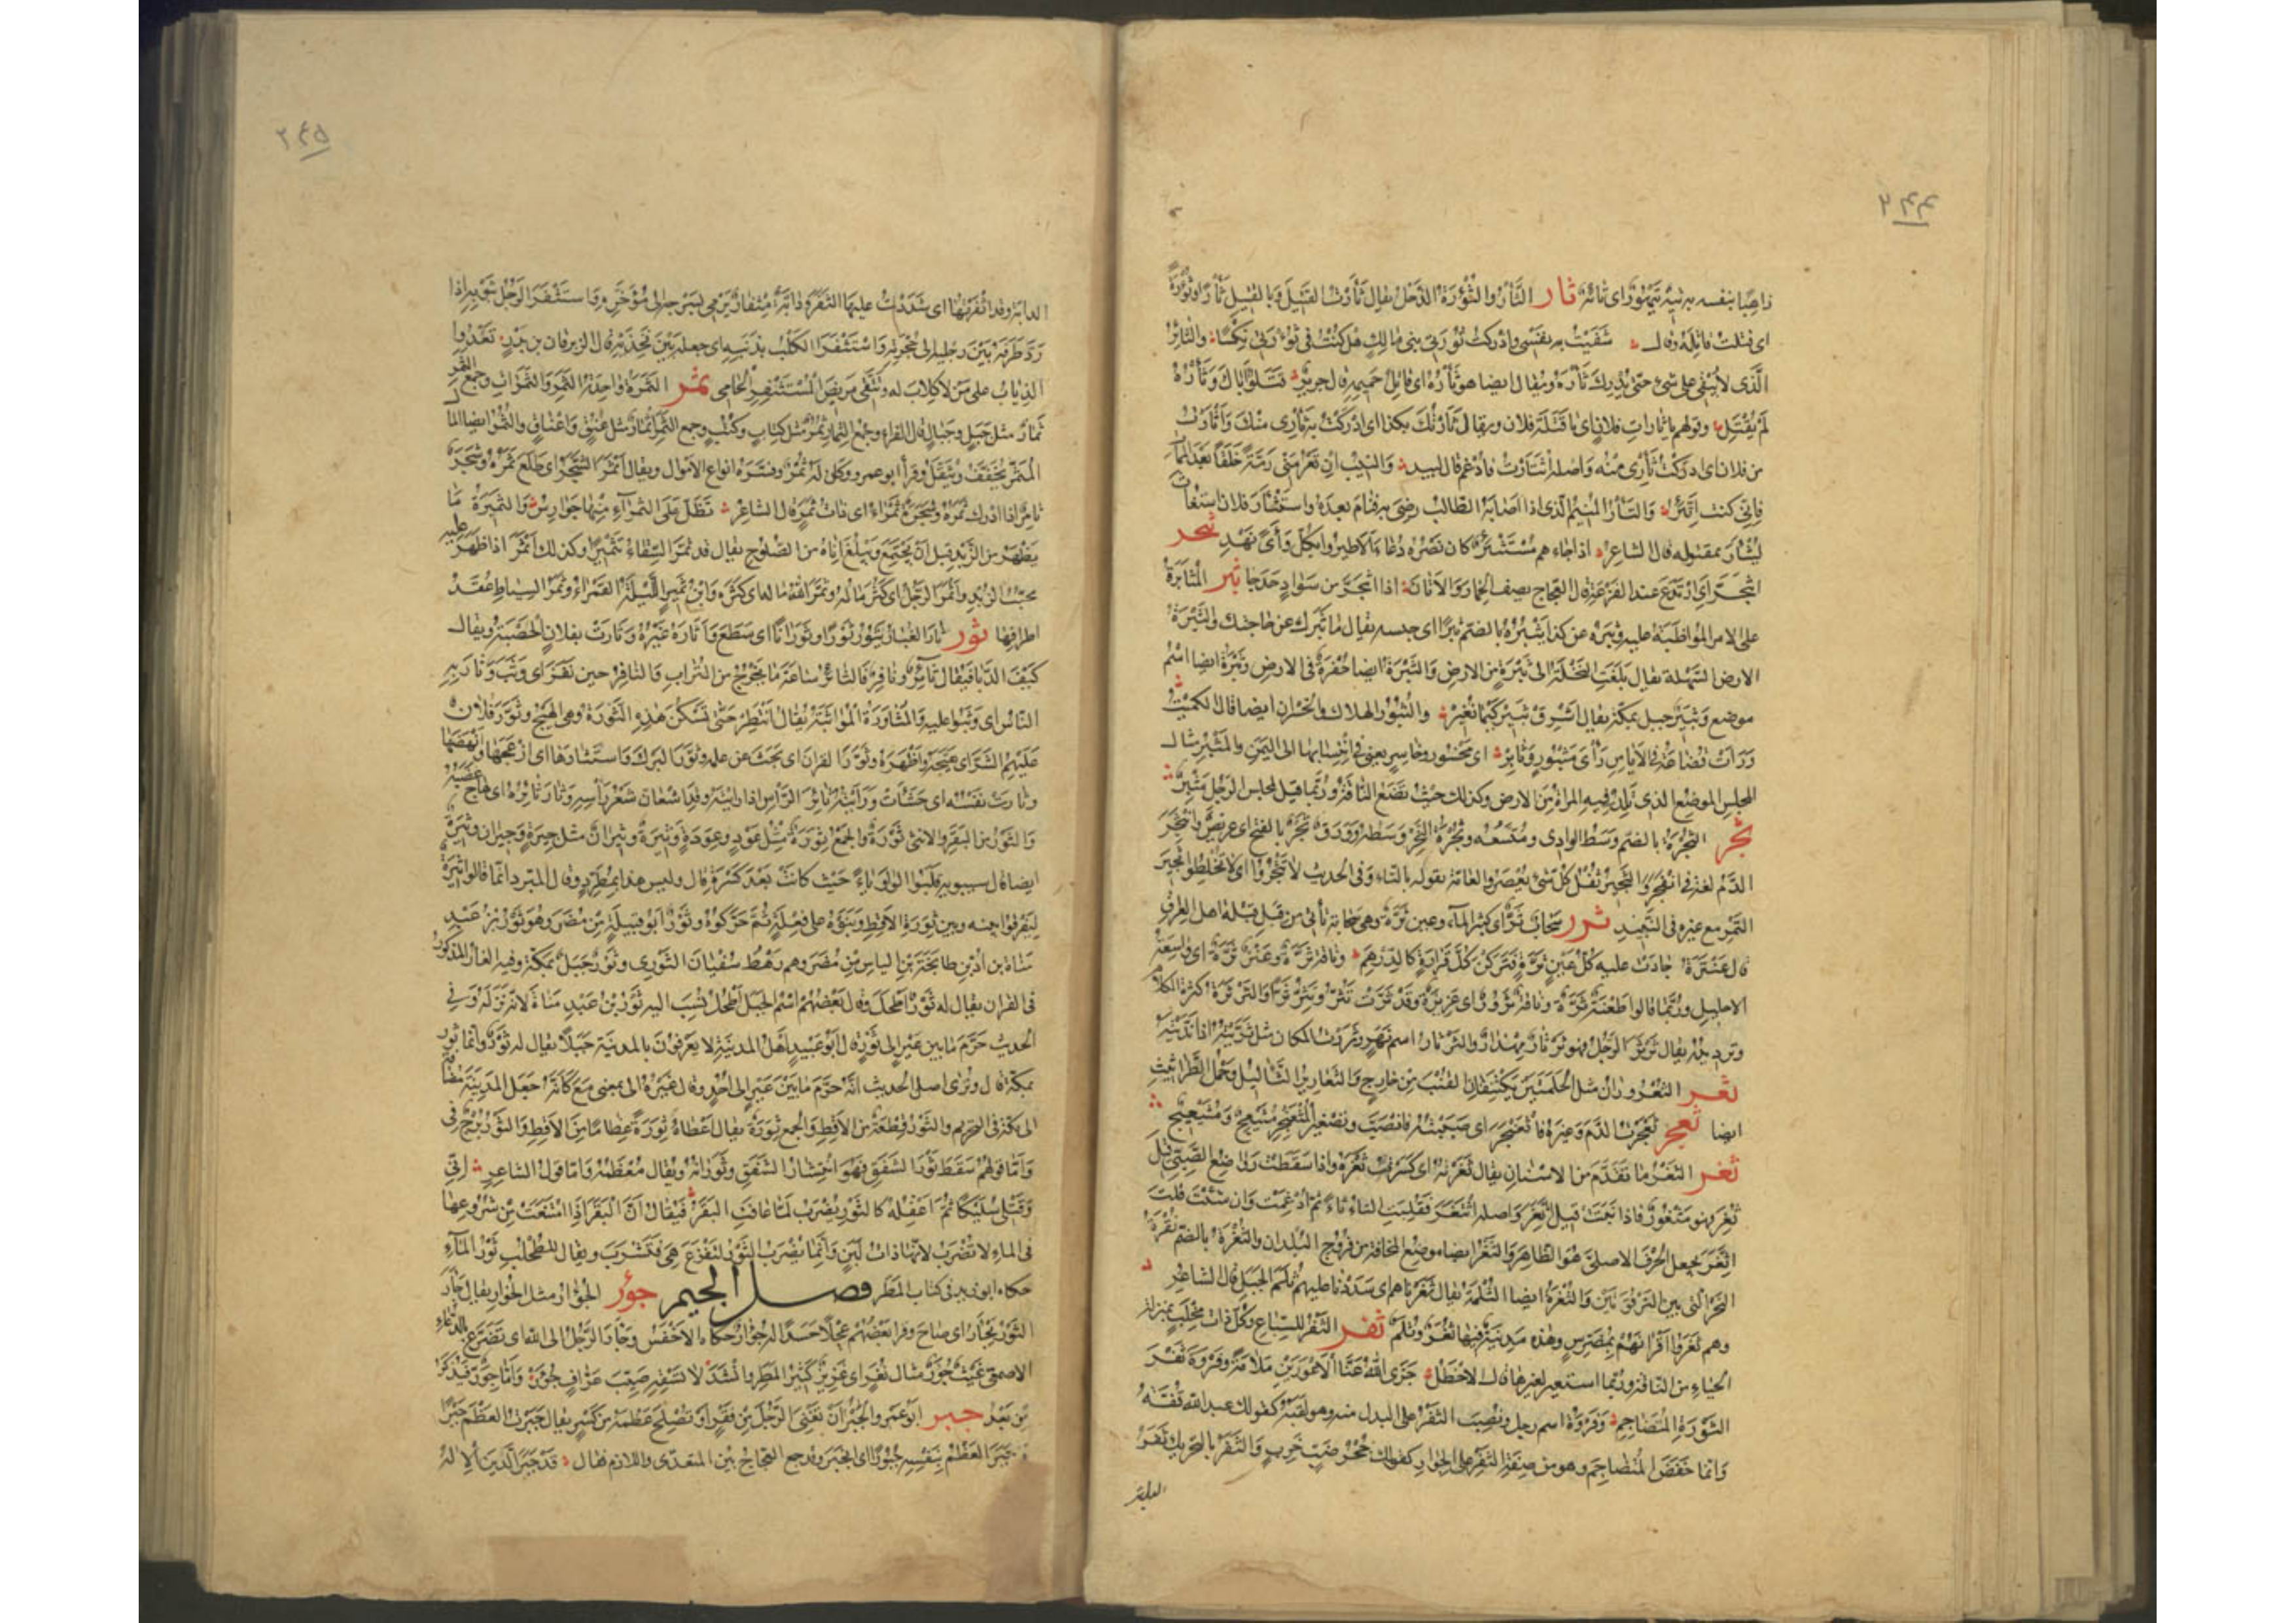 ٢٤٤
ذاهبا بنفسه به تيه تيهور اى تائه ثار الثأر والثؤرة الذحل يقال ثأرت القتيل وبالقتيل ثأرا وثؤرة
اى قتلت قاتله وقال شفيت به نفسى وادركت ثؤرتى بنى مالك هل كنت فى ثؤرتى نكسا والثائر
الذى لا يبقى على شئ حتى يدرك ثأره ويقال ايضا هو ثأره اى قاتل حميمه قال جرير قتلوا اباك وثأره
لم يقتل وقولهم يا ثارات فلان اى يا قتلة فلان ويقال ثأرتك بكذا اى ادركت به ثأرى منك واثأرت
من فلان اى ادركت ثأرى منه واصله اثتأرت فادغم قال لبيد والنيب ان تعر منى رمة خلقا بعد الممات
فانى كنت اتئر والثأر المنيم الذى اذا اصابه الطالب رضى به فنام بعده واستثأر فلان استغاث
ليثأر بمقتوله قال الشاعر اذا جاءهم مستثئر كان نصره دعاء الا طيروا بكل وأى نهد ثجر
اثبجر اى ارتدع عند الفزعة قال العجاج يصف الحمار والاتان اذا اثبجر من سواد حدجا ثبر المثابرة
على الامر المواظبة عليه وثبره عن كذا يثبره بالضم ثبرا اى حبسه يقال ما ثبرك عن حاجتك والثبرة
الارض السهلة يقال بلغت النخلة الى ثبرة من الارض والثبرة ايضا حفرة فى الارض وثبرة ايضا اسم
موضع وثبير جبل بمكة يقال اشرق ثبير كيما نغير والثبور الهلاك والخسران ايضا قال الكميت
ورأت قضاعة فى الايامن رأى مثبور وثابر اى مخسور وخاسر يعنى فى انتسابها الى اليمن والمثبر مثال
المجلس الموضع الذى تلد فيه المرأة من الارض وكذلك حيث تضع الناقة وربما قيل لمجلس الرجل مثبر
ثجر الثجرة بالضم وسط الوادى ومتسعه وثجرة النحر وسطه وورق ثجر بالفتح اى عريض وانثجر
الدم لغة فى انفجر والثجير ثفل كل شئ يعصر والعامة تقوله بالتاء وفى الحديث لا تثجروا اى لا تخلطوا ثجير
التمر مع غيره فى النبيذ ثرر سحاب ثر اى كثير الماء وعين ثرة وهى سحابة تأتى من قبل قبلة اهل العراق
قال عنترة جادت عليه كل عين ثرة فتركن كل قرارة كالدرهم وناقة ثرة وعنز ثرة اى واسعة
الاحليل وربما قالوا طعنة ثرة وناقة ثرور اى غزيرة وقد ثرت تثر وتثر ثرا والثرثرة كثرة الكلام
وترديده يقال ثرثر الرجل فهو ثرثار مهذار والثرثار اسم نهر وثررت المكان مثل ثريته اذا نديته
ثعر الثعروران مثل الحلمتين يكتنفان القنب من خارج والثعارير الثآليل وحمل الطراثيث
ايضا ثعجر ثعجرت الدم وغيره فاثعنجر اى صببته فانصب وتصغير المثعنجر مثيعج ومثيعيج
ثغر الثغر ما تقدم من الاسنان يقال ثغرته اى كسرت ثغره واذا سقطت رواضع الصبى قيل
ثغر فهو مثغور فاذا نبتت قيل اتغر واصله اثتغر فقلبت الثاء تاء ثم ادغمت وان شئت قلت
اثغر يجعل الحرف الاصلى هو الظاهر والثغر ايضا موضع المخافة من فروج البلدان والثغرة بالضم نقرة
النحر التى بين الترقوتين والثغرة ايضا الثلمة يقال ثغرناهم اى سددنا عليهم ثلم الجبل قال الشاعر
وهم ثغروا اقرانهم بمضرس وهذه مدينة فيها ثغر وثلم ثفر الثفر للسباع وكل ذات مخلب بمنزلة
الحياء من الناقة وربما استعير لغيرها قال الاخطل جزى الله عنا الاعورين ملامة وفروة ثفر
الثورة المتضاجم وفروة اسم رجل ونصب الثفر على البدل منه وهو لقبه كقولك عبد الله قفة
وانما خفض المتضاجم وهو من صفة الثفر على الجوار كقولك جحر ضب خرب والثفر بالتحريك ثفر
الدابة
٢٤٥
الدابة وقد اثفرتها اى شددت عليها الثفر ودابة مثفار يرمى بسرجه الى مؤخره واستثفر الرجل بثوبه اذا
رد طرفه بين رجليه الى حجزته واستثفر الكلب بذنبه اى جعله بين فخذيه قال الزبرقان بن بدر تعدوا
الذياب على من لا كلاب له وتتقى مربض المستثفر الحامى ثمر الثمرة واحدة الثمر والثمرات وجمع الثمر
ثمار مثل جبل وجبال قال الفراء وجمع الثمار ثمر مثل كتاب وكتب وجمع الثمر اثمار مثل عنق واعناق والثمر ايضا المال
المثمر يخفف ويثقل وقرأ ابو عمرو وكان له ثمر وفسره انواع الاموال ويقال اثمر الشجر اى طلع ثمره وشجر
ثامر اذا ادرك ثمره وشجرة ثمراء اى ذات ثمر قال الشاعر تظل على الثمراء منها جوارس والثميرة ما
يظهر من الزبد قبل ان يجتمع ويبلغ اناه من الصلوح يقال قد ثمر السقاء تثميرا وكذلك اثمر اذا ظهر عليه
تحبب الزبد واثمر الرجل اى كثر ماله وثمر الله ماله اى كثره وابن ثمير الليلة القمراء وثمر السياط عقد
اطرافها ثور ثار الغبار يثور ثورا وثورانا اى سطع واثاره غيره وثارت بفلان الحصبة ويقال
كيف الدبا فيقال ثائر ونافر فالثائر ساعة ما يخرج من التراب والنافر حين نفر اى وثب وثار به
الناس اى وثبوا عليه والمثاورة المواثبة يقال انتظر حتى تسكن هذه الثورة وهى الهيج وثور فلان
عليهم الشر اى هيجه واظهره وثور القرآن اى بحث عن علمه وثور البرك واستثارها اى ازعجها وانهضها
وثارت نفسه اى جشأت ورأيته ثائر الرأس اذا رأيته وقد اشعان شعر رأسه وثار ثائره اى هاج غضبه
والثور من البقر والانثى ثورة والجمع ثورة مثل عود وعودة وثيرة وثيران مثل جيرة وجيران وثيرة
ايضا قال سيبويه قلبوا الواو ياء حيث كانت بعد كسرة قال وليس هذا بمطرد وقال المبرد انما قالوا ثيرة
ليفرقوا بينه وبين ثورة الاقط وبنوه على فعلة ثم حركوه وثور ابو قبيلة من مضر وهو ثور بن عبد
مناة بن اد بن طابخة بن الياس بن مضر وهم رهط سفيان الثورى وثور جبل بمكة وفيه الغار المذكور
فى القرآن يقال له ثور اطحل وقال بعضهم اسم الجبل اطحل نسب اليه ثور بن عبد مناة لانه نزله وفى
الحديث حرم ما بين عير الى ثور قال ابو عبيد اهل المدينة لا يعرفون بالمدينة جبلا يقال له ثور وانما ثور
بمكة قال ونرى اصل الحديث انه حرم ما بين عير الى احد وقال غيره الى بمعنى مع كأنه جعل المدينة مضافة
الى مكة فى التحريم والثور قطعة من الاقط والجمع ثورة يقال اعطاه ثورة عظاما من الاقط والثور برج فى
واما قولهم سقط ثور الشفق فهو انتشار الشفق وثورانه ويقال معظمه واما قول الشاعر انى
وقتلى سليكا ثم اعقله كالثور يضرب لما عافت البقر فيقال ان البقر اذا امتنعت من شروعها
فى الماء لا تضرب لانها ذات لبن وانما يضرب الثور لتفزع هى فتشرب ويقال للطحلب ثور الماء
حكاه ابو زيد فى كتاب المطر فصل الجيم جؤر الجؤار مثل الخوار يقال جأر
الثور يجأر اى صاح وقرأ بعضهم عجلا جسدا له جؤار حكاه الاخفش وجأر الرجل الى الله اى تضرع بالدعاء
الاصمعى غيث جؤر مثال نغر اى غزير كثير المطر وانشد لا تسقه صيب عزاف جؤر واما جور فيذكر
من بعد جبر ابو عمرو الجبر ان تغنى الرجل من فقر او تصلح عظمه من كسر يقال جبرت العظم جبرا
وجبر العظم بنفسه جبورا اى انجبر وقد جمع العجاج بين المتعدى واللازم فقال قد جبر الدين الاله